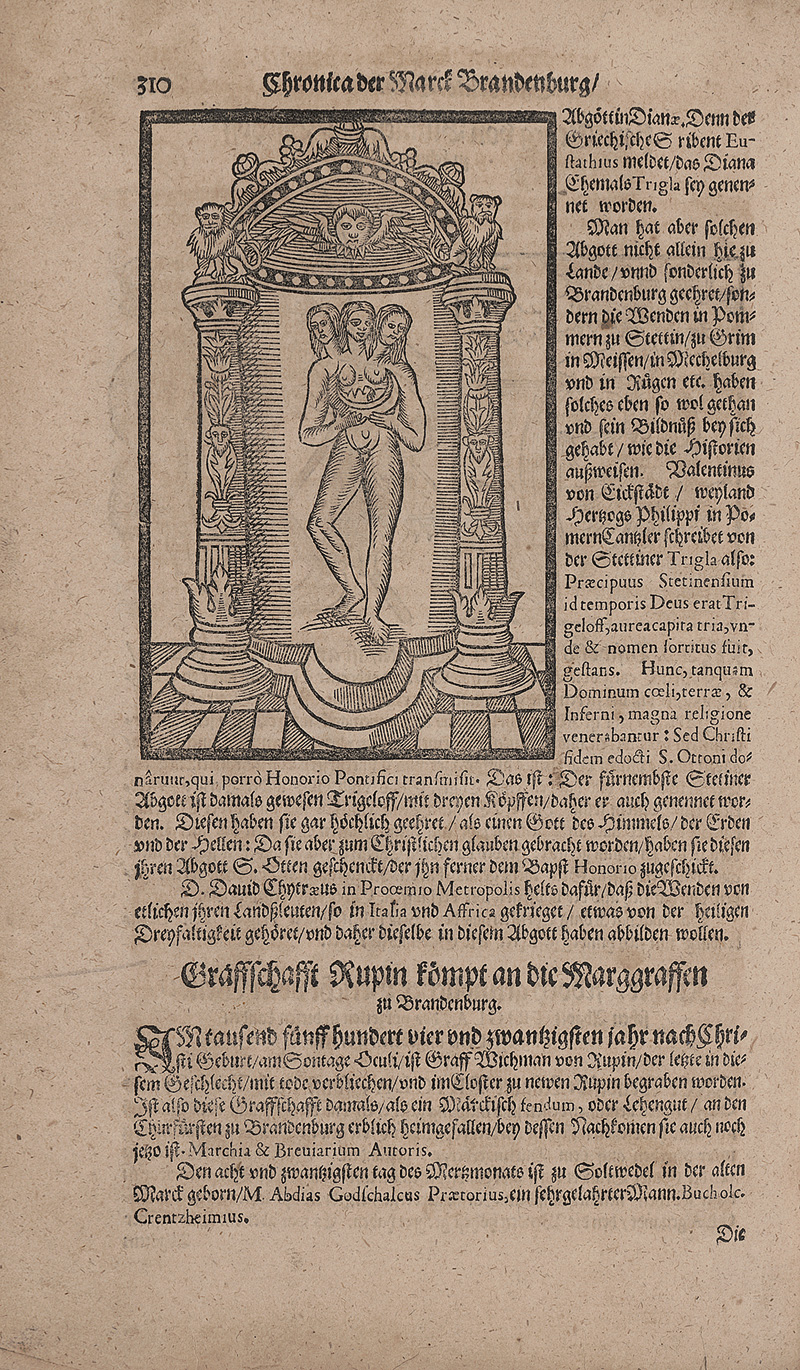 310 Chronica der Marck Brandenburg/
Abgöttin Dianæ. Denn der
Griechische S ribent Eu-
stathius meldet/das Diana
Ehemals Trigla sey genen-
net worden.
Man hat aber solchen
Abgott nicht allein hie zu
Lande/vnnd sonderlich zu
Brandenburg geehret/son-
dern die Wenden in Pom-
mern zu Stettin/zu Grim
in Meissen/in Mechelburg
vnd in Rügen etc. haben
solches eben so wol gethan
vnd sein Bildnüß bey sich
gehabt/wie die Historien
außweisen. Valentinus
von Eickstädt/ weyland
Hertzogs Philippi in Po-
mern Cantzler schreibet von
der Stettiner Trigla also:
Præcipuus Stetinensium
id temporis Deus erat Tri-
geloff, aurea capita tria, vn-
de & nomen sortitus fuit,
gestans. Hunc, tanquam
Dominum cœli, terræ, &
Inferni, magna religione
venerabantur: Sed Christi
fidem edocti S. Ottoni do-
nârunt, qui porrò Honorio Pontifici transmisit. Das ist: Der fürnembste Stetiner
Abgott ist damals gewesen Trigeloff/mit dreyen Köpffen/daher er auch genennet wor-
den. Diesen haben sie gar höchlich geehret/als einen Gott des Himmels/der Erden
vnd der Hellen: Da sie aber zum Christlichen glauben gebracht worden/haben sie diesen
jhren Abgott S. Otten geschenckt/der jhn ferner dem Bapst Honorio zugeschickt.
D. Dauid Chytræus in Procemio Metropolis helts dafür/daß die Wenden von
etlichen jhren Landßleuten/so in Italia vnd Affrica gekrieget/ etwas von der heiligen
Dreyfaltigkeit gehöret/vnd daher dieselbe in diesem Abgott haben abbilden wollen.
Graffschafft Rupin kömpt an die Marggraffen
zu Brandenburg.
IM tausend fünff hundert vier vnd zwantzigsten jahr nach Chri-
sti Geburt/am Sontage Oculi/ist Graff Wichman von Rupin/der letzte in die-
sem Geschlecht/mit tode verbliechen/vnd im Closter zu newen Rupin begraben worden.
Ist also diese Graffschafft damals/als ein Märckisch feudum, oder Lehengut/ an den
Churfürsten zu Brandenburg erblich heimgefallen/bey dessen Nachkomen sie auch noch
jetzo ist. Marchia & Breviarium Autoris.
Den acht vnd zwantzigsten tag des Mertzmonats ist zu Soltwedel in der alten
Marck geborn/M. Abdias Godschalcus Prætorius, ein sehr gelahrter Mann. Bucholc.
Crentzheimius.
Die